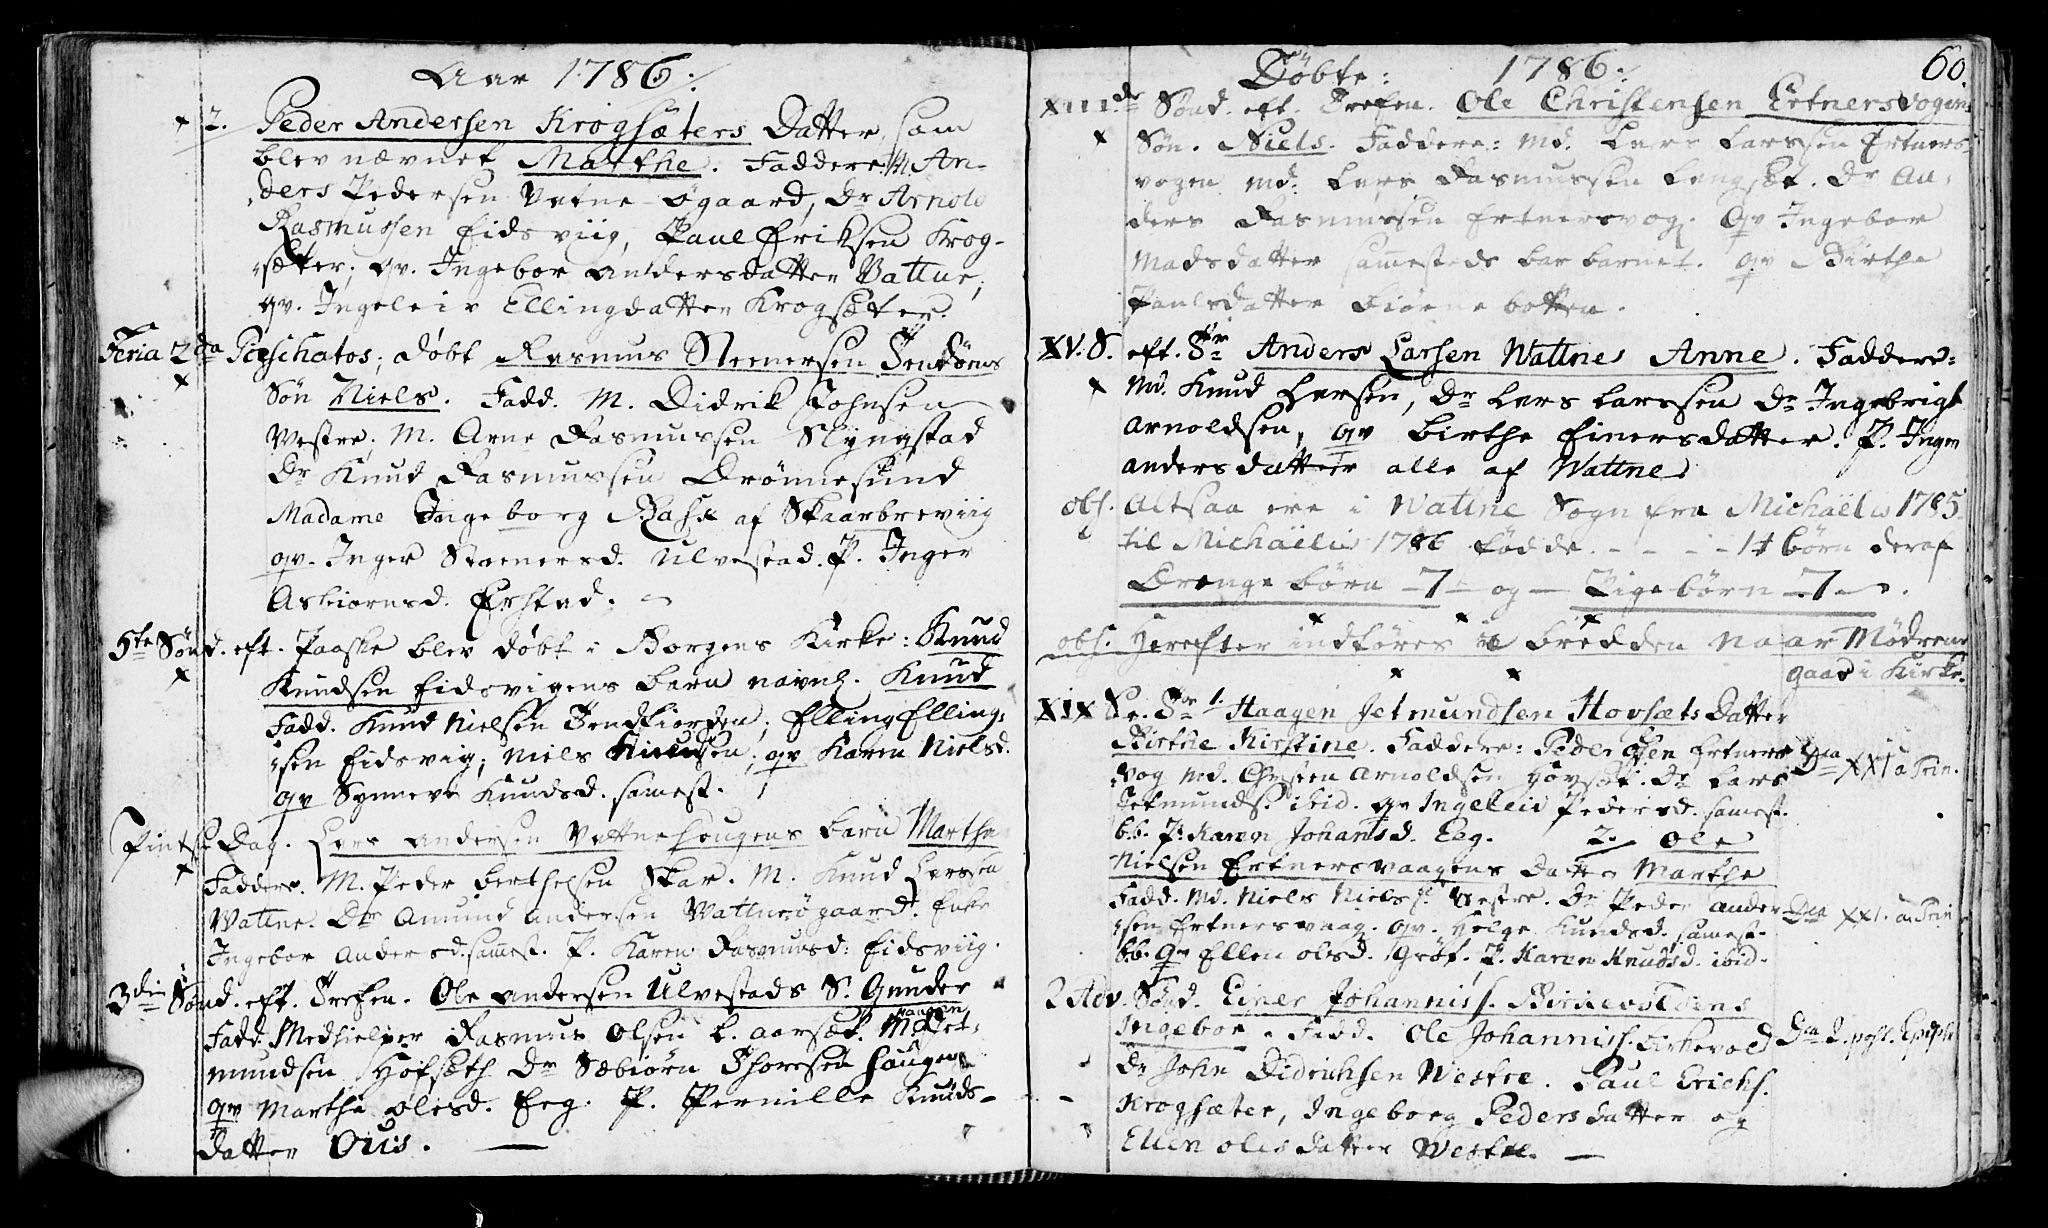 Aar 1786:
2. Peder Andersen Krogsæters Datter, som
blev nævnet Marthe. Faddere: M An-
ders Pedersen Vatne-Øgaard, Dr Arnold
Rasmussen Eidsviig, Paul Eriksen Krog-
sæter; qv. Ingebor Andersdatter Vattne,
qv. Ingeleiv Ellingdatter Krogsæter.
Feria 2da Paschatos; døbt Rasmus Steenersen
Søn Niels. Fadd. M. Didrik Johnsen
Vestre, M. Arne Rasmussen Slyngstad
Dr Knud Rasmussen Drönnesund
Madame Ingeborg Rask af Skaarbreviig
qv. Inger Steenersd. Ulvestad. P. Inger
Asbiørnsd. Erstad.
5te Sönd. eft. Paaske blev döbt i Borgens Kirke: Knud
Knudsen Eidsvigens barn navnl. Knud
Fadd. Knud Nielsen Tendfiorden; Elling Elling-
sen Eidsvig; Niels Knudsen; qv Karen Nielsd.
qv Synneve Knudsd. samest.
Pintse Dag. Lars Andersen Vattnehougens barn Marthe
Faddere. M. Peder Berthelsen Skar. M. Knud Larssen
Wattne. Dr Amund Andersen Wattneøgaard. Enke
Ingebor Andersd. samest. P. Karen Rasmusd: Eidsviig.
3die Sönd. eft. Trefen. Ole Andersen Ulvestads S. Gunder
Fadd. Medhielper Rasmus Olsen L. Aarsæt. Md Haagen Jet-
mundsen Hofsæth Dr Sæbiörn Thoresen Haugen
qv Marthe Olesd. Eeg. P. Pernille Knuds-
datter Ouis.
Döbte: 1786: 60.
XIIIde Sönd. eft. Trefen. Ole Christensen Ertnersvogens
Søn. Niels. Faddere: Md. Lars Larssen Ertners-
vogen Md. Lars Rasmussen Langsæt. Dr An-
ders Rasmussen Ertnersvog. Qv Ingebor
Madsdatter sammesteds bar barnet. qv Birthe
Paulsdatter Biørnebotten.
XV. S. eft. Tr Anders Larsen Wattnes Anne. Faddere:
Md. Knud Larsen, Dr Lars Larssen Dr Ingebrigt
Arnoldsen, qv Birthe Einersdatter. P. Inger
Andersdatter alle af Wattne
obs. Altsaa ere i Wattne Sogn fra Michaëlis 1785
til Michaëlis 1786 födde - - - 14 börn deraf
Drenge börn - 7 - og - Pige börn - 7 -
obs. Herefter indföres i bredden naar Mödrene
gaae i Kirke.
XIX S. e. Tr 1. Haagen Jetmundsen Hovsæts Datter
Birthe Kirstine. Faddere: Peder Ertners-
vog Md. Arnoldsen Hovsæt. Dr Lars
Jetmunds. ibid. qv Ingeleiv Pedersd. samest.
b.b. P. Karen Johansd. Eeg. 2. Ole
Dca XXI a Trin.
Nielsen Ertnersvaagens Datter Marthe
Fadd. Md. Niels Niels. Vestre. Dr Peder Ander-
sen Ertnersvaag. qv. Helge Knudsd. samest.
b.b. Qv Ellen Olsd. Gröt. P. Karen Knudsd. ibid.
Dca XXI. a Trin
2 Adv. Sönd. Einer Johanniss. Birkevoldens
Ingebor. Fadd. Ole Johanniss. Birkevold
Dca 2. post. Epiph
Dr John Didrichsen Westre. Paul Erichs.
Krogsæter, Ingeborg Pedersdatter og
Ellen Olesdatter Westre.